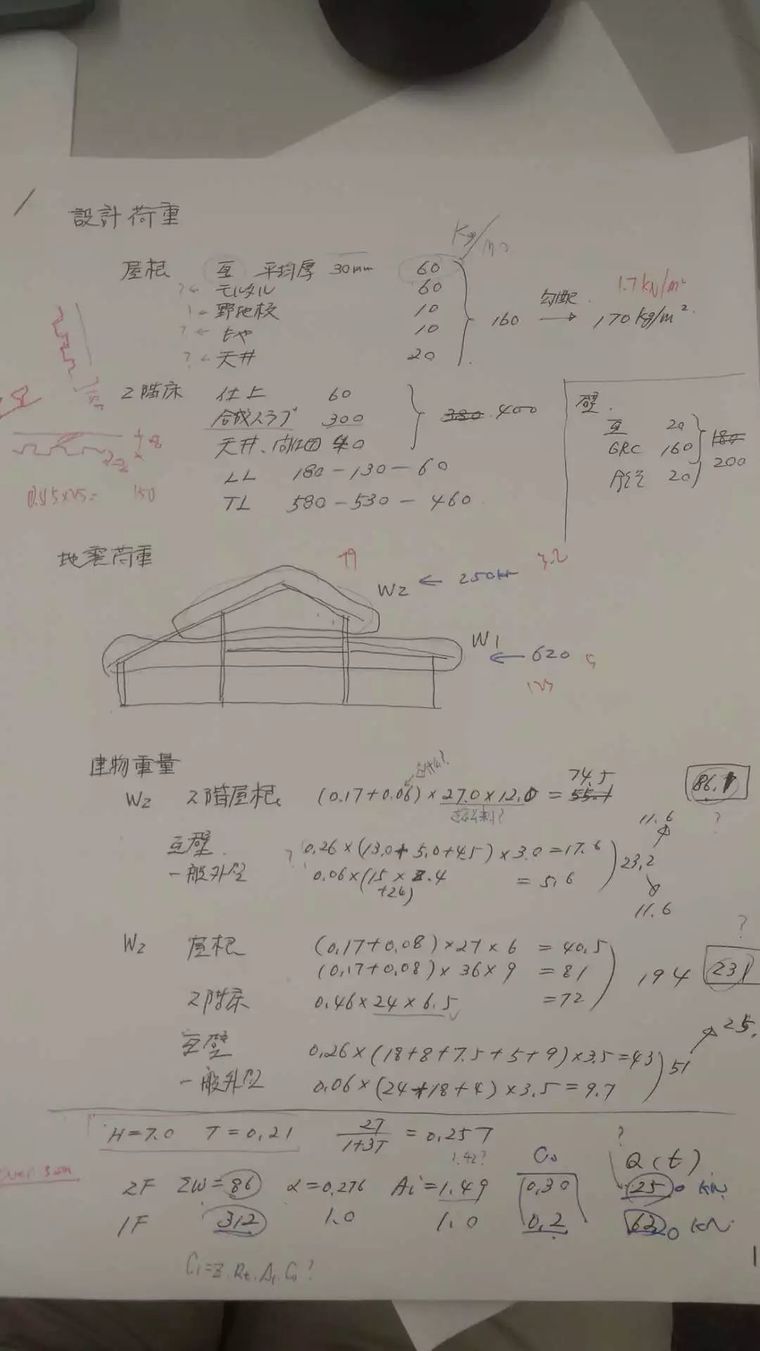 設計荷重
Kg/m2
屋根 瓦 平均厚 30mm 60
? ← モルタル 60
! ← 野地板 10
? ← もや 10
? ← 天井 20
160 勾配 → 170 kg/m².
1.7kN/m²
2階床 仕上 60
合成スラブ 300
天井、間仕切 40
380 400
LL 180-130-60
TL 580-530-460
8
0.45×25= 150
壁
瓦 20
GRC 160
180
200
20
地震荷重
W2 ← 250kN 3.2
W1 ← 620
建物重量
W2 2階屋根 (0.17+0.06)×27.0×12.0 = 74.5 55.1
86.1
?
瓦壁 ? 0.26×(13.0+5.0+4.5)×3.0=17.6
一般外壁 0.06×(15×2.4 = 5.6
+26)
23.2
11.6
11.6
W2 屋根 (0.17+0.08)×27×6 = 40.5
(0.17+0.08)×36×9 = 81
2階床 0.46×24×6.5 =72
194
?
231
瓦壁 0.26×(18+8+7.5+5+9)×3.5=43
一般外壁 0.06×(24+18+4)×3.5=9.7
51
25.
H=7.0 T=0.21 27/1+3T = 0.257
1.42?
Co
?
Q(t)
2F ΣW=86 α=0.276 Ai=1.49 0.30 250 kN
1F 312 1.0 1.0 0.2 620 kN
Ci=Z.Rt.Ai.Co?